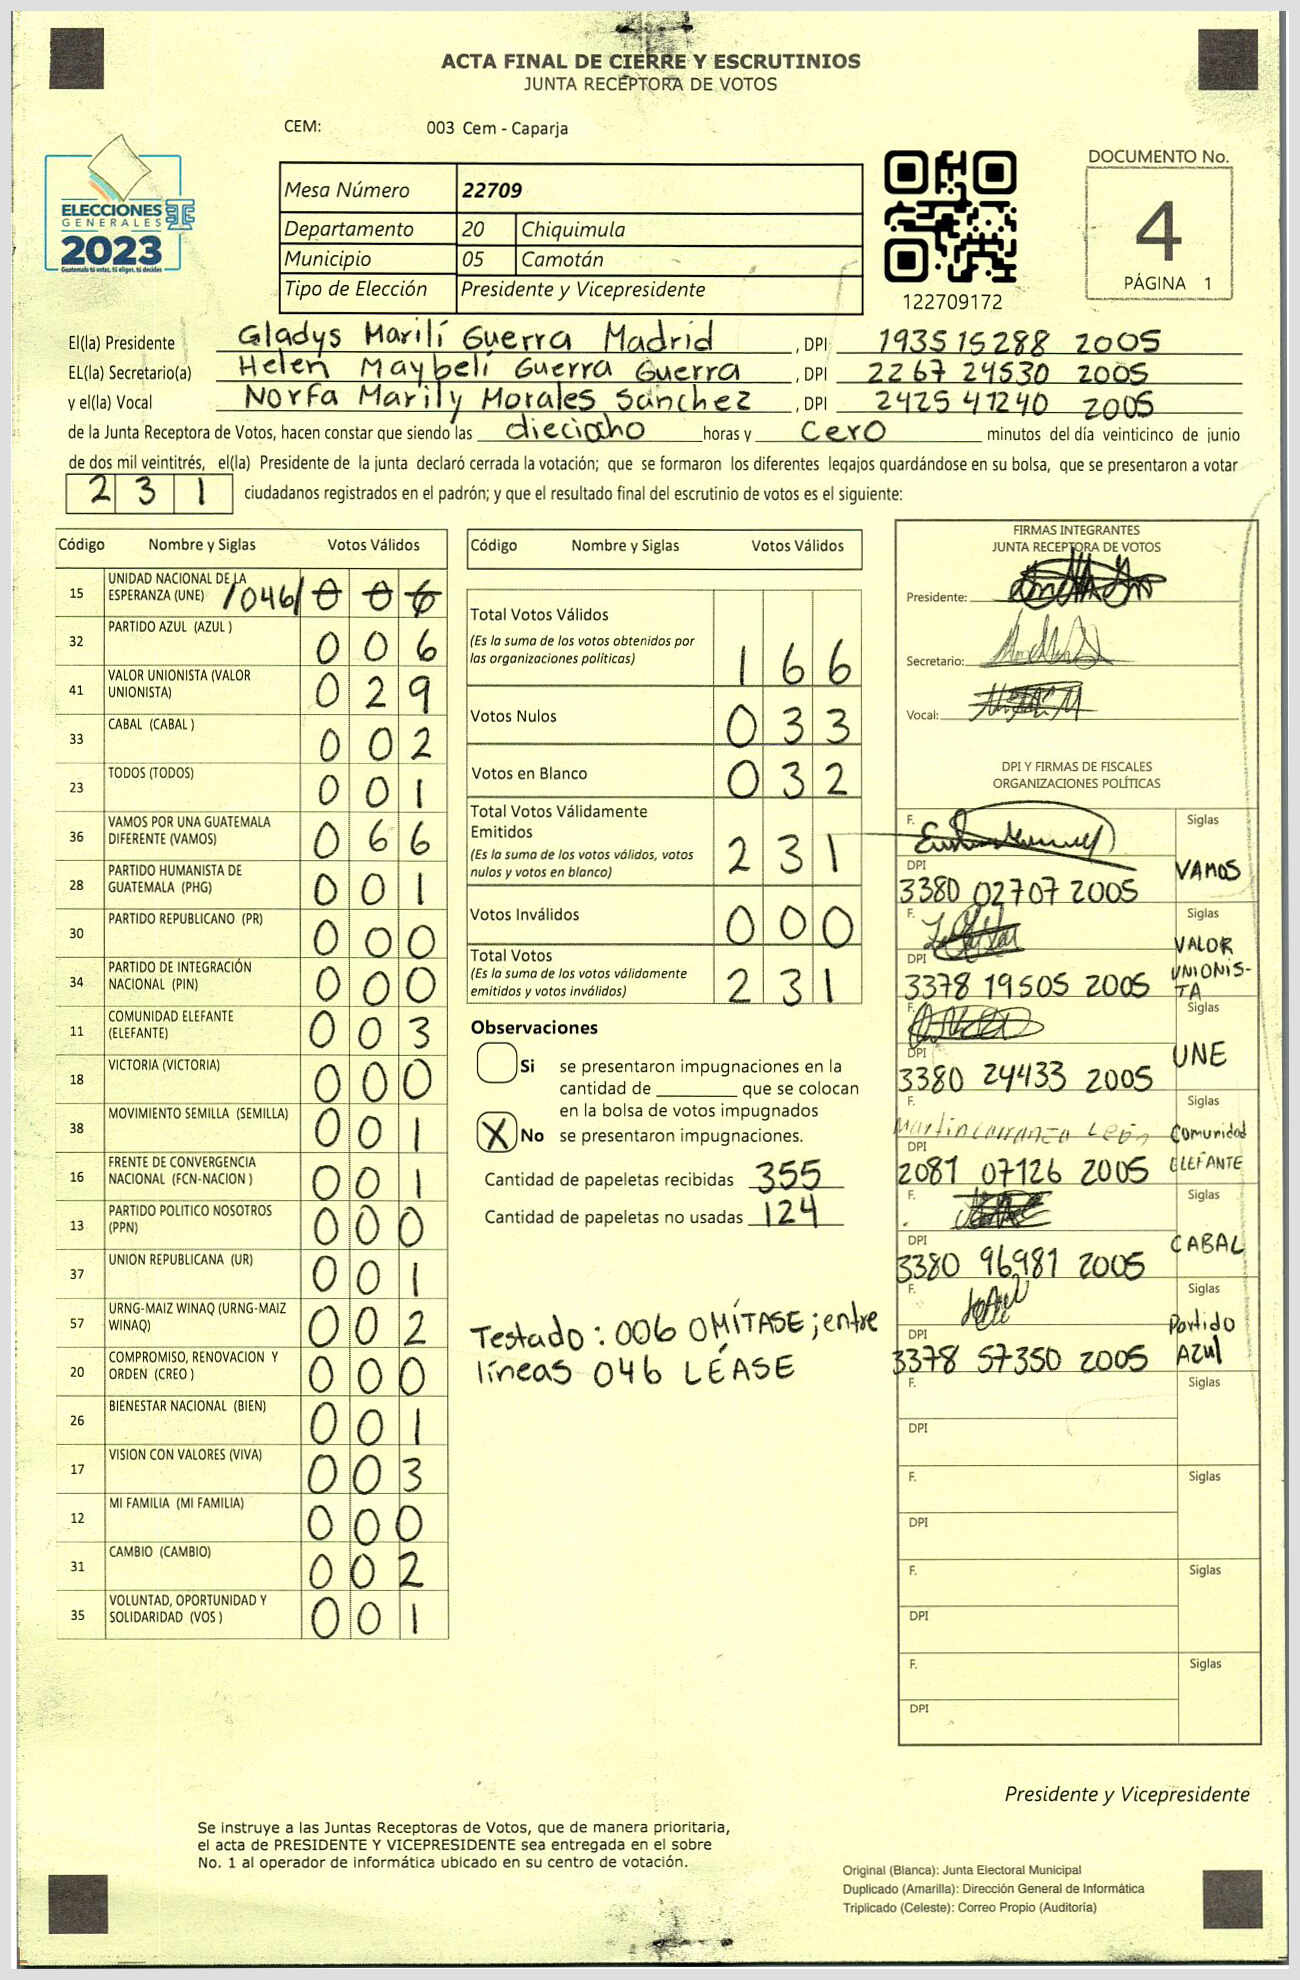 ACTA FINAL DE CIERRE Y ESCRUTINIOS
JUNTA RECEPTORA DE VOTOS
CEM: 003 Cem - Caparja
ELECCIONES
GENERALES
2023
Guatemala tú votas, tú eliges, tú decides
Mesa Número 22709
Departamento 20 Chiquimula
Municipio 05 Camotán
Tipo de Elección Presidente y Vicepresidente
122709172
DOCUMENTO No.
4
PÁGINA 1
El(la) Presidente Gladys Marilí Guerra Madrid , DPI 1935 15288 2005
EL(la) Secretario(a) Helen Maybelí Guerra Guerra , DPI 2267 24530 2005
y el(la) Vocal Norfa Marily Morales Sánchez , DPI 2425 41240 2005
de la Junta Receptora de Votos, hacen constar que siendo las dieciocho horas y cero minutos del día veinticinco de junio
de dos mil veintitrés, el(la) Presidente de la junta declaró cerrada la votación; que se formaron los diferentes legajos guardándose en su bolsa, que se presentaron a votar
231 ciudadanos registrados en el padrón; y que el resultado final del escrutinio de votos es el siguiente:
Código Nombre y Siglas Votos Válidos
15 UNIDAD NACIONAL DE LA ESPERANZA (UNE) /046/ 006
32 PARTIDO AZUL (AZUL ) 006
41 VALOR UNIONISTA (VALOR UNIONISTA) 029
33 CABAL (CABAL ) 002
23 TODOS (TODOS) 001
36 VAMOS POR UNA GUATEMALA DIFERENTE (VAMOS) 066
28 PARTIDO HUMANISTA DE GUATEMALA (PHG) 001
30 PARTIDO REPUBLICANO (PR) 000
34 PARTIDO DE INTEGRACIÓN NACIONAL (PIN) 000
11 COMUNIDAD ELEFANTE (ELEFANTE) 003
18 VICTORIA (VICTORIA) 000
38 MOVIMIENTO SEMILLA (SEMILLA) 001
16 FRENTE DE CONVERGENCIA NACIONAL (FCN-NACION ) 001
13 PARTIDO POLITICO NOSOTROS (PPN) 000
37 UNION REPUBLICANA (UR) 001
57 URNG-MAIZ WINAQ (URNG-MAIZ WINAQ) 002
20 COMPROMISO, RENOVACION Y ORDEN (CREO ) 000
26 BIENESTAR NACIONAL (BIEN) 001
17 VISION CON VALORES (VIVA) 003
12 MI FAMILIA (MI FAMILIA) 000
31 CAMBIO (CAMBIO) 002
35 VOLUNTAD, OPORTUNIDAD Y SOLIDARIDAD (VOS ) 001
Código Nombre y Siglas Votos Válidos
Total Votos Válidos
(Es la suma de los votos obtenidos por
las organizaciones políticas) 166
Votos Nulos 033
Votos en Blanco 032
Total Votos Válidamente
Emitidos
(Es la suma de los votos válidos, votos
nulos y votos en blanco) 231
Votos Inválidos 000
Total Votos
(Es la suma de los votos válidamente
emitidos y votos inválidos) 231
Observaciones
Si se presentaron impugnaciones en la
cantidad de ________ que se colocan
en la bolsa de votos impugnados
X No se presentaron impugnaciones.
Cantidad de papeletas recibidas 355
Cantidad de papeletas no usadas 124
Testado: 006 OMÍTASE; entre
líneas 046 LÉASE
FIRMAS INTEGRANTES
JUNTA RECEPTORA DE VOTOS
Presidente:
Secretario:
Vocal:
DPI Y FIRMAS DE FISCALES
ORGANIZACIONES POLÍTICAS
F. Siglas
DPI VAMOS
3380 02707 2005
F. Siglas
DPI VALOR UNIONIS-TA
3378 19505 2005
F. Siglas
DPI UNE
3380 24433 2005
F. Martin Carranza León Siglas
DPI Comunidad ELEFANTE
2081 07126 2005
F. Siglas
DPI CABAL
3380 96981 2005
F. Siglas
DPI Partido Azul
3378 57350 2005
F. Siglas
DPI
F. Siglas
DPI
F. Siglas
DPI
F. Siglas
DPI
Presidente y Vicepresidente
Se instruye a las Juntas Receptoras de Votos, que de manera prioritaria,
el acta de PRESIDENTE Y VICEPRESIDENTE sea entregada en el sobre
No. 1 al operador de informática ubicado en su centro de votación.
Original (Blanca): Junta Electoral Municipal
Duplicado (Amarilla): Dirección General de Informática
Triplicado (Celeste): Correo Propio (Auditoría)